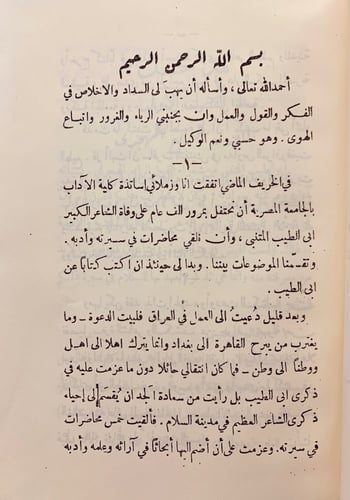 بسم الله الرحمن الرحيم
أحمد الله تعالى ، وأسأله أن يهب لى السداد والاخلاص في
الفكر والقول والعمل وان يجنبني الرياء والغرور واتباع
الهوى . وهو حسبي ونعم الوكيل .
— ١ —
في الخريف الماضي اتفقت انا وزملائي اساتذة كلية الآداب
بالجامعة المصرية أن نحتفل بمرور الف عام على وفاة الشاعر الكبير
ابى الطيب المتنبى ، وأن نلقي محاضرات في سيرته وأدبه .
وتقسمنا الموضوعات بيننا . وبدا لى حينئذ ان اكتب كتابًا عن
ابى الطيب .
وبعد قليل دُعيتُ الى العمل في العراق فلبيت الدعوة – وما
يغترب من يبرح القاهرة الى بغداد وانما يترك اهلا الى اهل
ووطناً الى وطن – فما كان انتقالي حائلا دون ما عزمت عليه في
ذكرى ابى الطيب بل رأيت من سعادة الجد ان يُقسَم لي إحياء
ذكرى الشاعر العظيم في مدينة السلام . فألقيت خمس محاضرات
في سيرته . وعزمت على أن أضم اليها أبحاثًا في آرائه وعلمه وأدبه